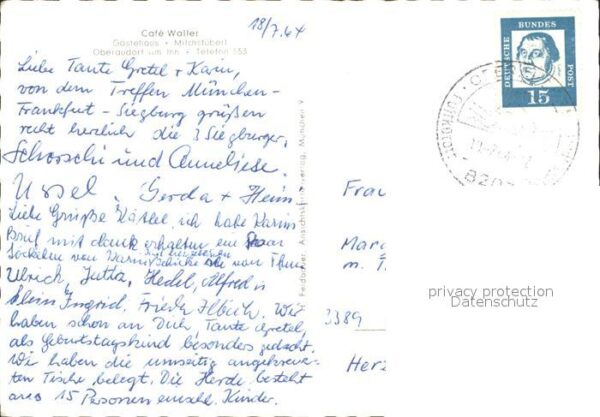 Café Waller
Gästehaus • Milchstüberl
Oberaudorf am Inn • Telefon 353
18/7.64
Liebe Tante Gretel + Karin,
von dem Treffen München-
Frankfurt - Siegburg grüßen
recht herzlich die 3 Siegburger,
Schorschi und Anneliese.
Ursel. Gerda + Heinz
Liebe Grüße Kätel. ich habe Karins
Brief mit dank erhalten ein Paar
Söckchen von
von Ihnen
Ulrich, Jutta, Hedel, Alfred u
klein Ingrid. Wir
haben schon an Dich, Tante Gretel,
als Geburtstagskind besonders gedacht.
Wir haben die umseitig angekreuz-
ten Tische belegt. Die Herde besteht
aus 15 Personen einschl. Kinder.
Ansichtskartenverlag, München 9
DEUTSCHE BUNDES POST
15
820
Frau
Mar
m. T
3389
Herz
privacy protection
Datenschutz